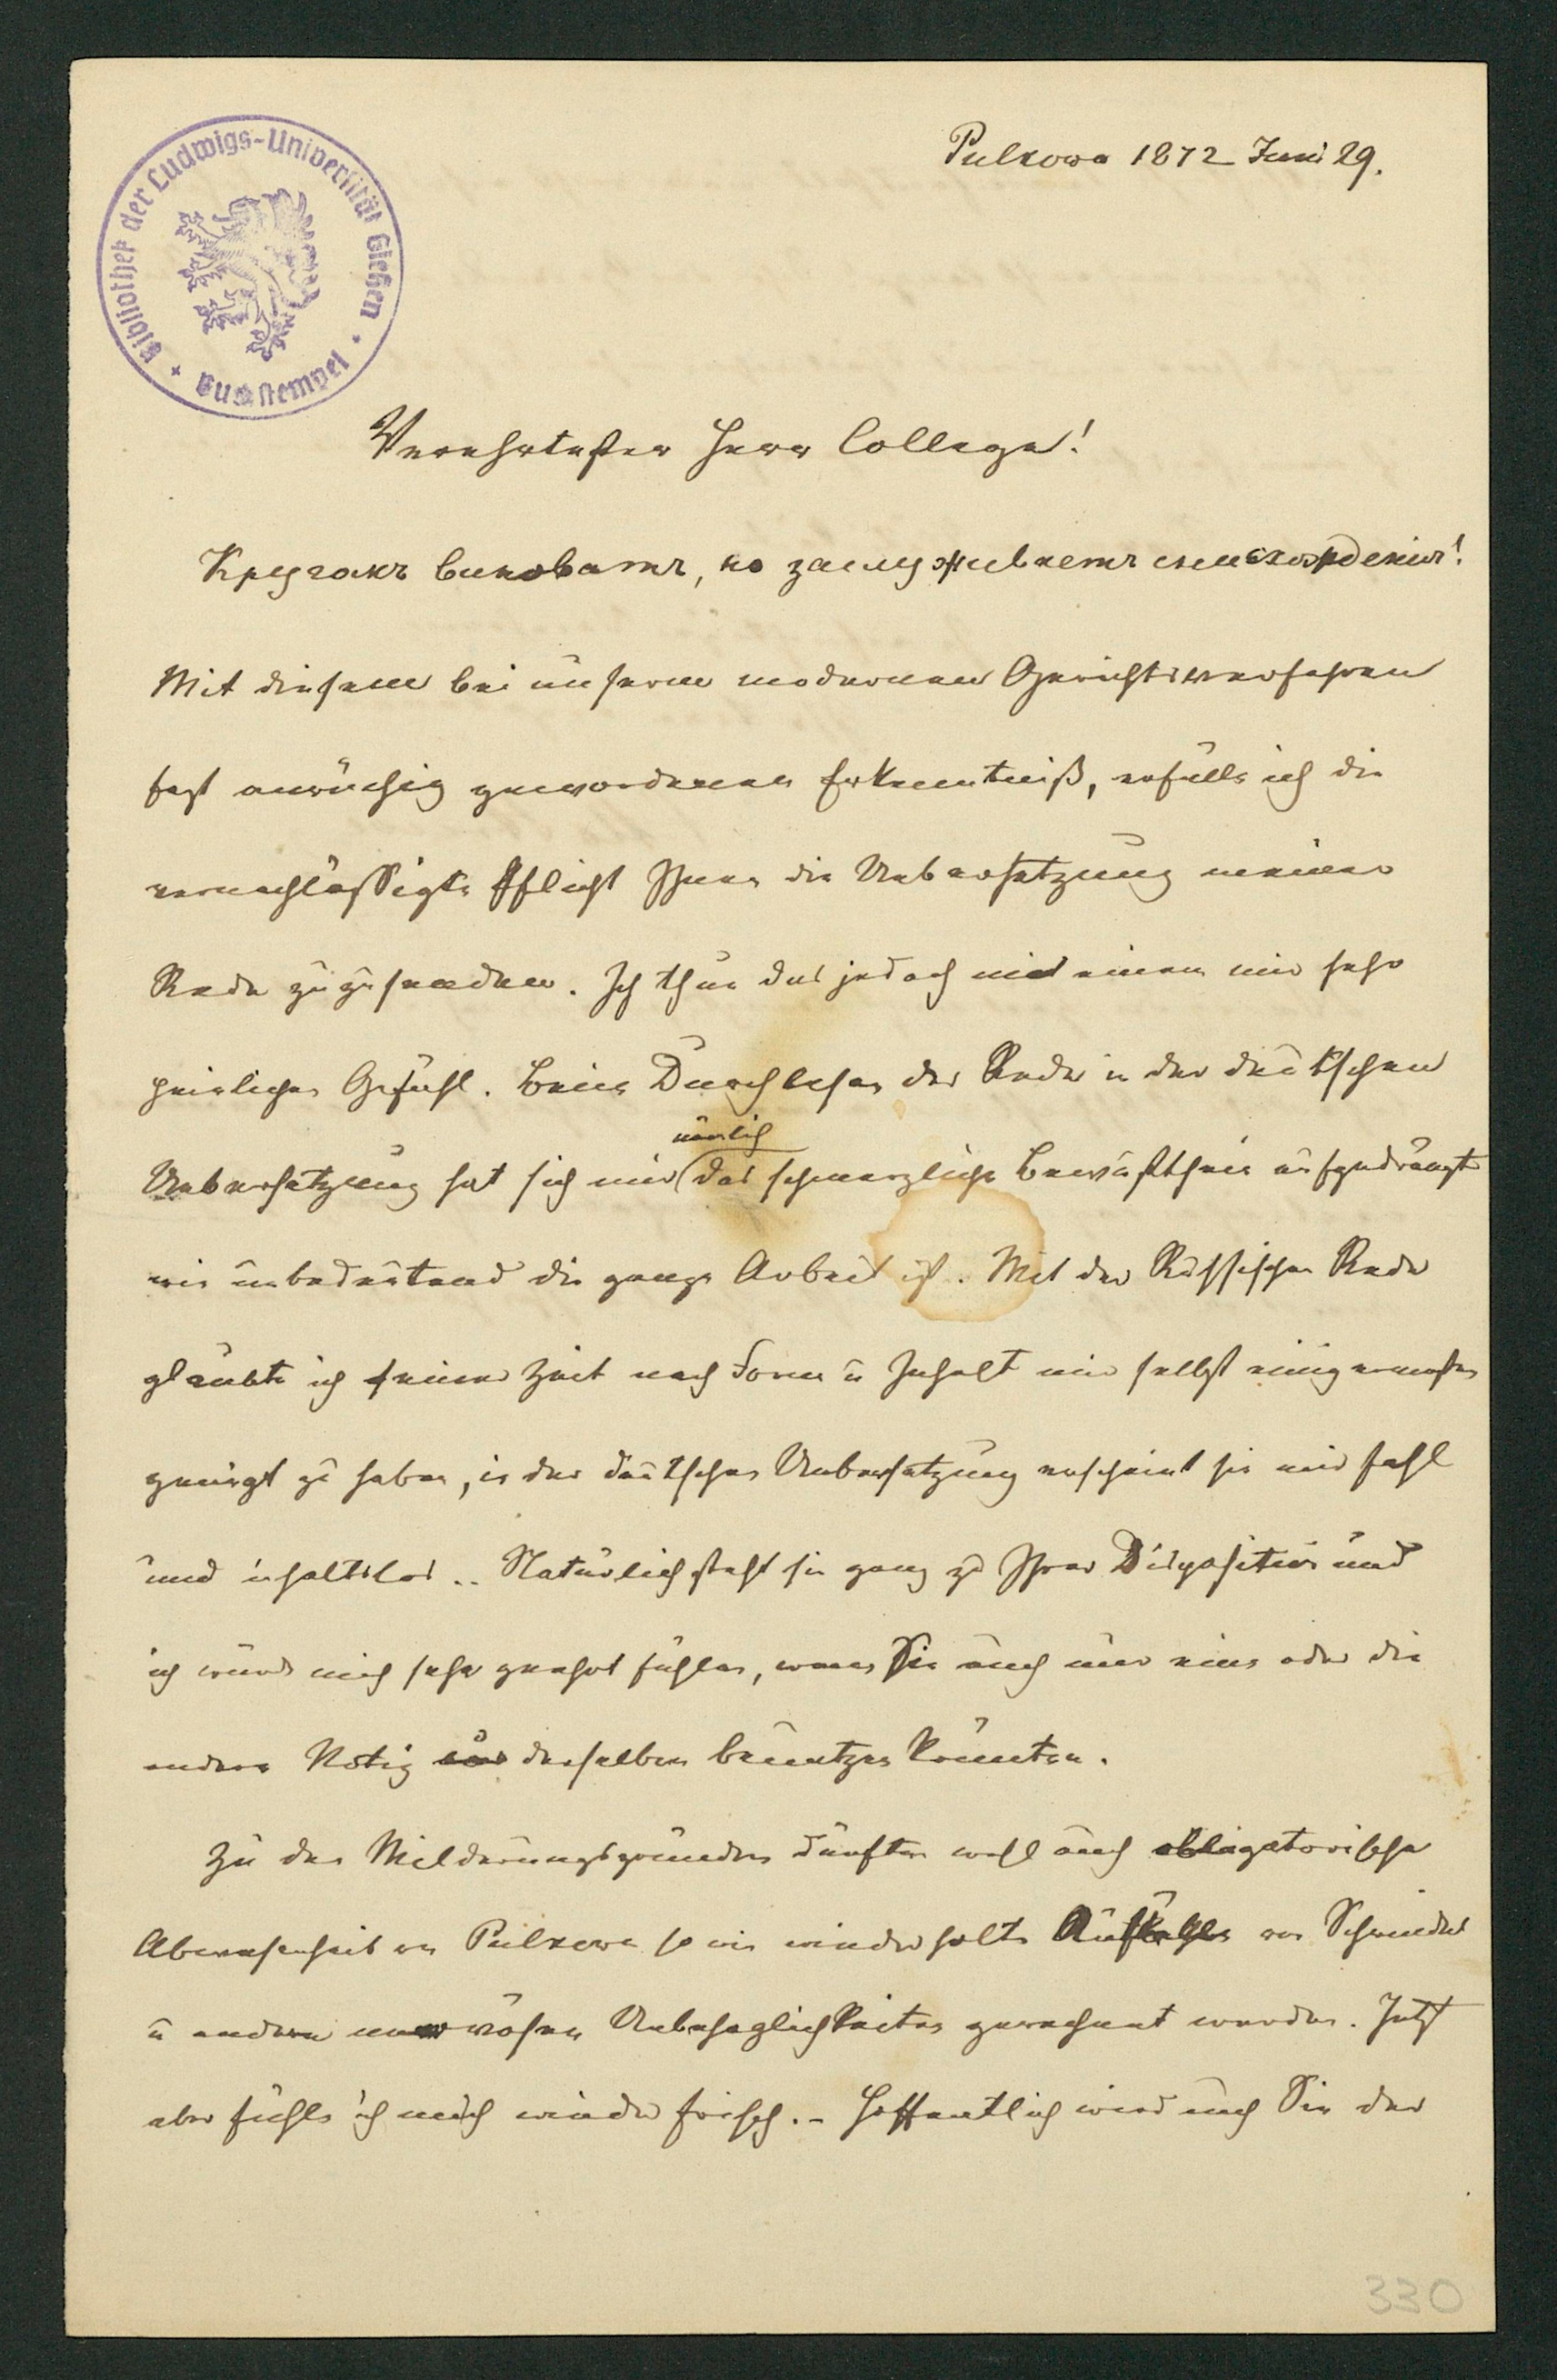 Pulkowa 1872 Juni 29.
Bibliothek der Ludwigs-Universität Gießen
Buchstempel
Verehrtester Herr College!
Кругомъ виноватъ, но заслуживаетъ снисхожденія!
Mit diesem bei unserm modernen Gerichtsverfahren
fast anrüchig gewordenen Erkenntniß, erfülle ich die
vernachlässigte Pflicht Ihnen die Uebersetzung meiner
Rede zuzusenden. Ich thue das jedoch mit einem mir sehr
peinlichen Gefühl. Beim Durchlesen der Rede in der deutschen
nämlich
Uebersetzung hat sich mir das schmerzliche Bewußtsein aufgedrängt
wie unbedeutend die ganze Arbeit ist. Mit der Russischen Rede
glaubte ich seiner Zeit nach Form u Inhalt mir selbst einigermaßen
genügt zu haben, in der deutschen Uebersetzung erscheint sie mir fahl
und inhaltslos.. Natürlich steht sie ganz zu Ihrer Disposition und
ich würde mich sehr geehrt fühlen, wenn Sie auch nur eine oder die
andere Notiz derselben benutzen könnten.
Zu den Milderungsgründen dürften wohl auch obligatorische
Abwesenheit von Pulkowa so wie wiederholte von Schwindel
u andern nervösen Unbehaglichkeiten gerechnet werden. Jetzt
aber fühle ich mich wieder frisch. – Hoffentlich wird auch Sie der
330